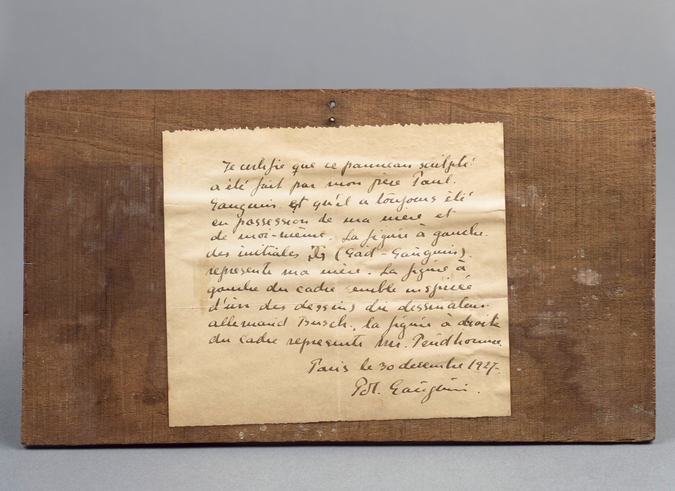 Je certifie que ce panneau sculpté
a été fait par mon père Paul
Gauguin et qu'il a toujours été
en possession de ma mère et
de moi-même. La figure à gauche
des initiales (Gad-Gauguin)
represente ma mère. La figure à
gauche du cadre semble inspirée
d'un des dessins du dessinateur
allemand Busch, la figure à droite
du cadre represente Mr. Prudhomme
Paris le 30 decembre 1927.
Gauguin.